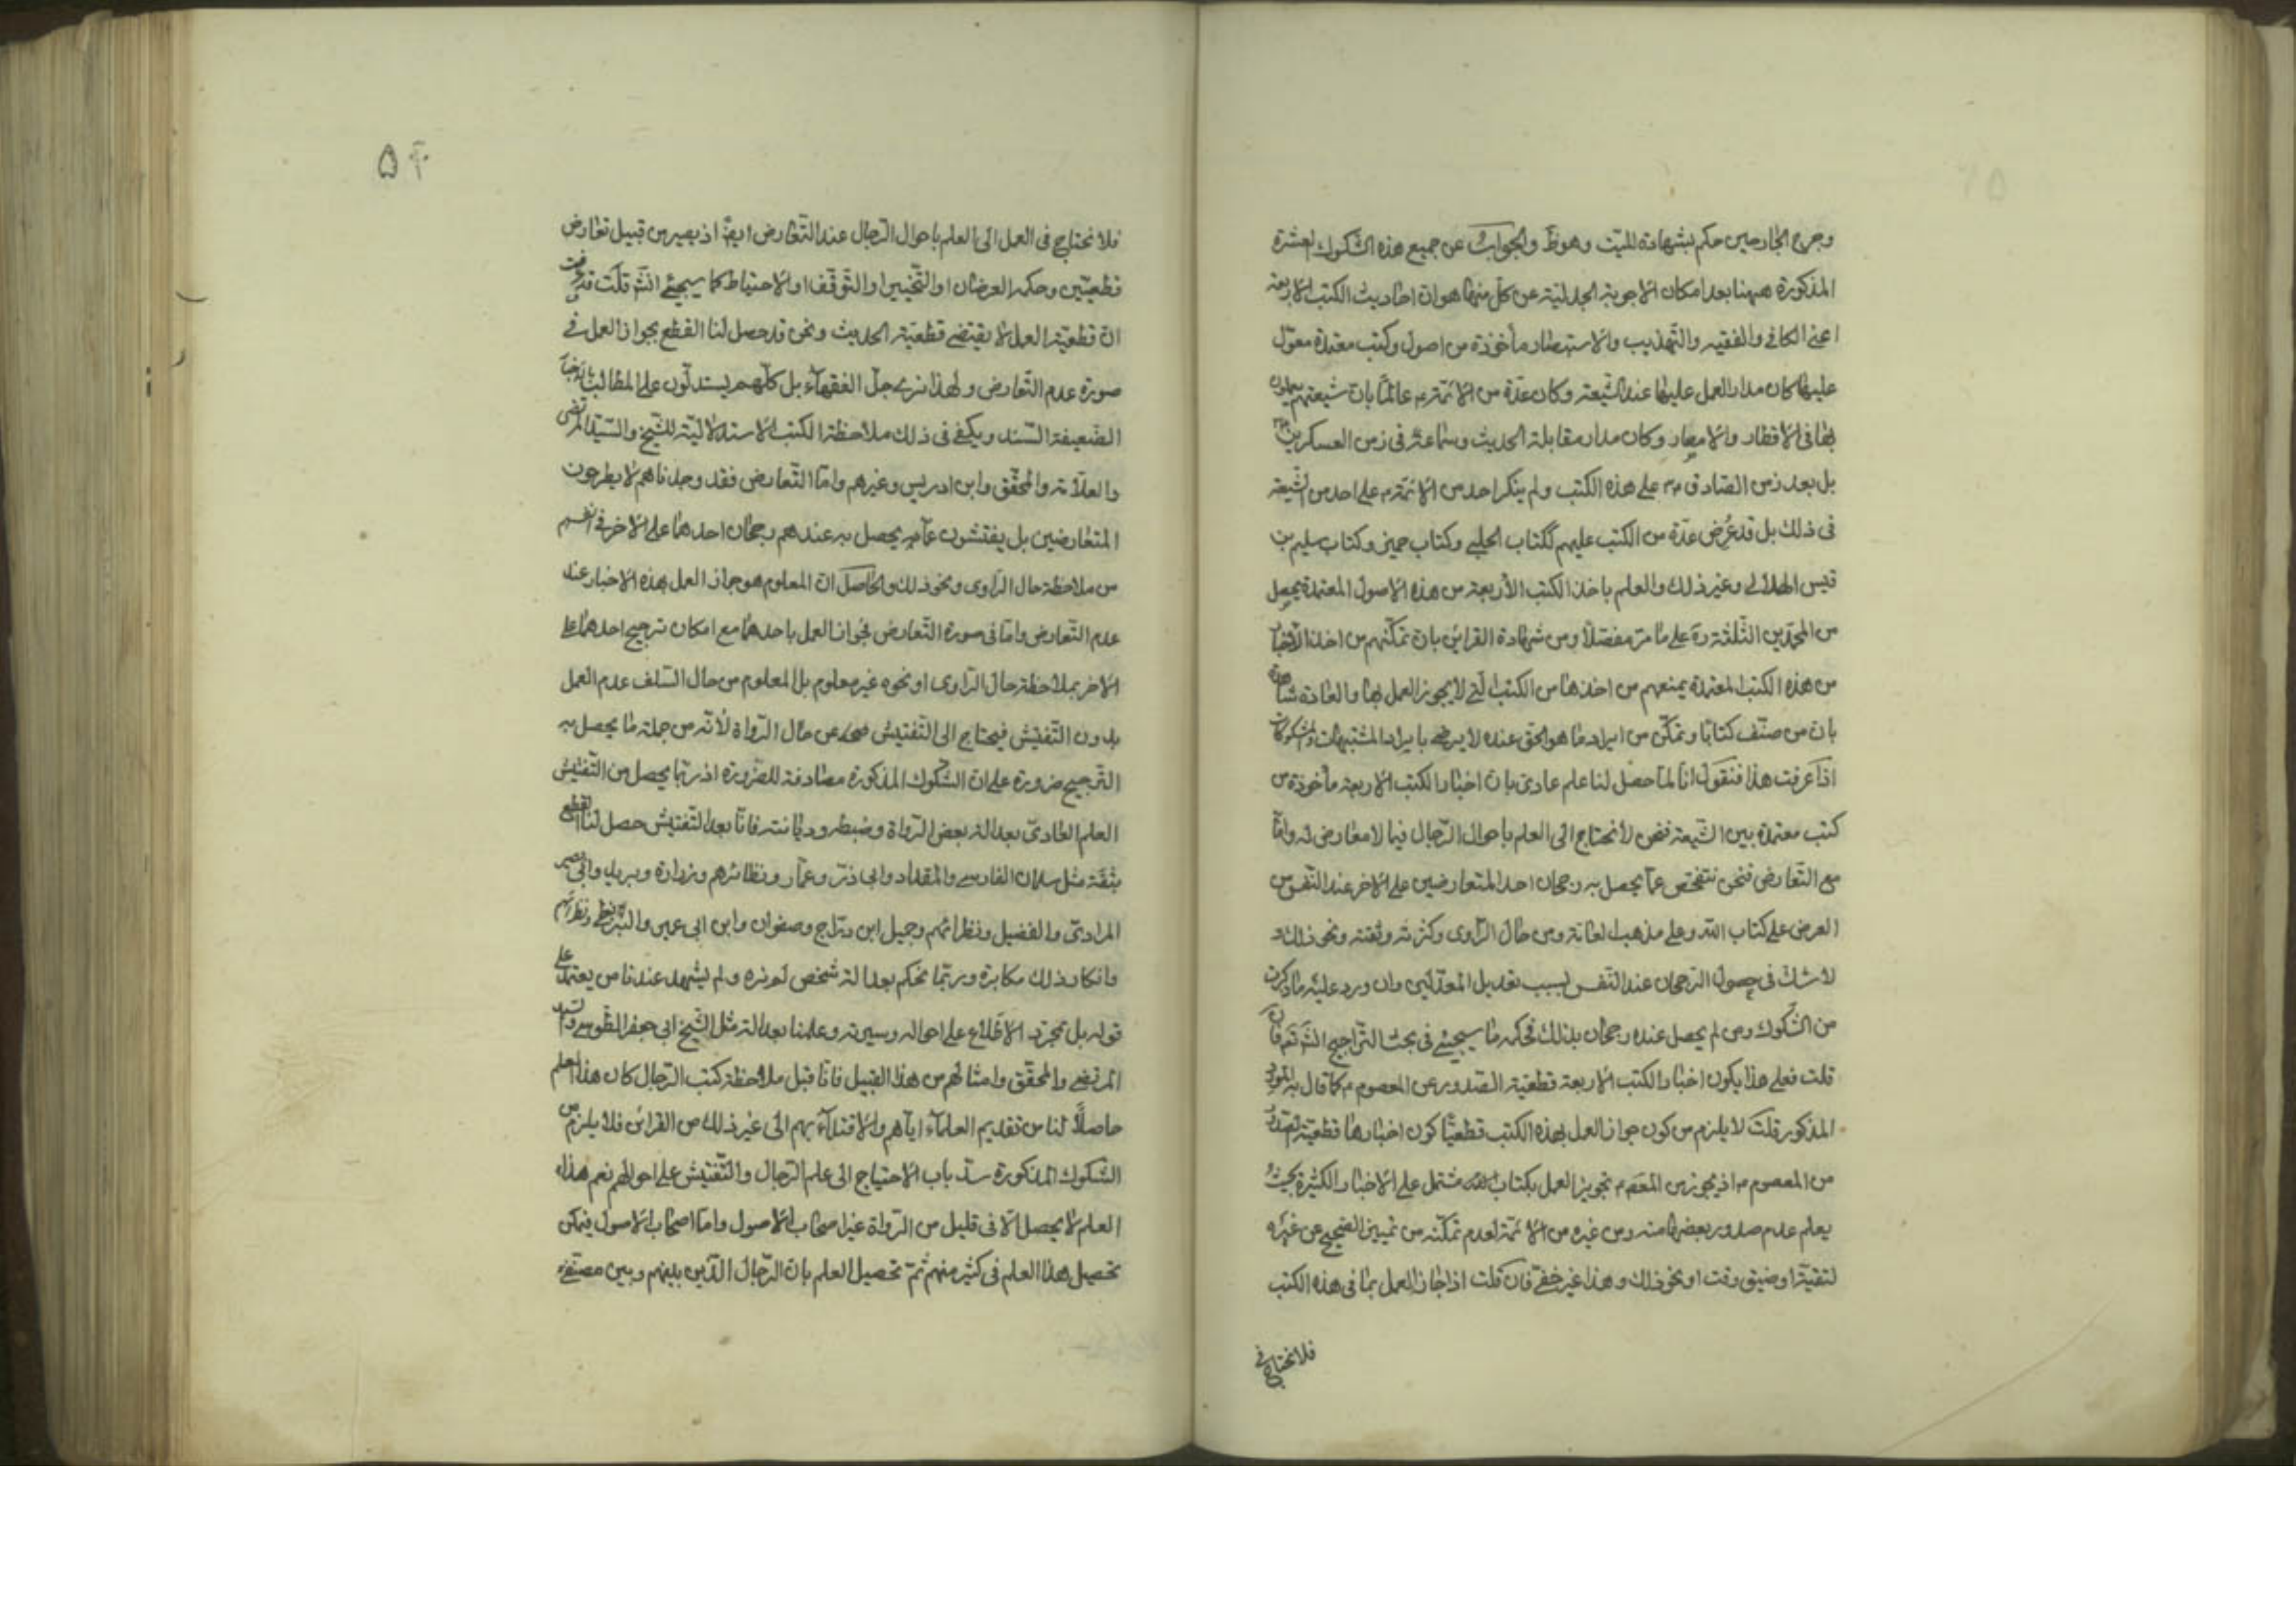 وجرح الجارحين حكم بشهادة الميّت وهو ظ والجواب عن جميع هذه الشكوك العشرة
المذكورة ههنا بعد امكان الاجوبة الجدليّة عن كلّ منها هو ان احاديث الكتب الاربعة
اعنى الكافى والفقيه والتّهذيب والاستبصار مأخوذة من اصول وكتب معتمدة معوّل
عليها كان مدار العمل عليها عند الشّيعة وكان عدّة من الائمّة ع عالمًا بانّ شيعتهم يعملون
بها فى الاقطار والامصار وكان مدار مقابلة الحديث وسماعه فى زمن العسكريين
بل بعد زمن الصّادق ع على هذه الكتب ولم ينكر احد من الائمّة ع على احد من الشّيعة
فى ذلك بل قد عُرض عدّة من الكتب عليهم ككتاب الحلبى وكتاب حريز وكتاب سليم بن
قيس الهلالى وغير ذلك والعلم باخذ الكتب الأربعة من هذه الاصول المعتمدة يحصل
من المحمّدين الثّلثة ره على ما مرّ مفصّلاً ومن شهادة القراين بانّ تمكّنهم من اخذ الاخبار
من هذه الكتب المعتمدة يمنعهم من اخذها من الكتب التى لا يجوز العمل بها والعادة شاهدة
بان من صنّف كتابًا وتمكّن من ايراد ما هو الحق عنده لا يرضى بايراد المشتبهات والمشكوكات
اذا عرفت هذا فنقول انّا لمّا حصل لنا علم عادى بان اخبار الكتب الاربعة مأخوذة من
كتب معتمدة بين الشّيعة فنحن لا نحتاج الى العلم باحوال الرّجال فيما لا معارض له وامّا
مع التّعارض فنحن نتفحّص عمّا يحصل به رجحان احد المتعارضين على الآخر عند النّفس من
العرض على كتاب الله وعلى مذهب العامّة ومن حال الرّاوى وكثرته وثقته ونحو ذلك و
لا شك فى حصول الرّجحان عند النّفس بسبب تعديل المعدّلين وان ورد عليه ما ذكرت
من الشّكوك ومن لم يحصل عنده رجحان بذلك فحكمه ما سيجئ فى بحث التّراجيح انش تع فان
قلت فعلى هذا يكون اخبار الكتب الاربعة قطعيّة الصّدور عن المعصوم ع كما قال به المورد
المذكور قلت لا يلزم من كون جواز العمل بهذه الكتب قطعيًّا كون اخبارها قطعيّة الصّدور
من المعصوم ع اذ يجوز من المعصوم تجويز العمل بكتاب مشتمل على الاخبار الكثيرة بحيث
يعلم عدم صدور بعضها منه ومن غيره من الائمّة لعدم تمكّنه من تمييز الصّحيح عن غيره
لتقيّة او ضيق وقت او نحو ذلك وهذا غير خفىّ فان قلت اذا جاز العمل بما فى هذه الكتب
فلا نحتاج فى
۵۴
فلا نحتاج فى العمل الى العلم باحوال الرّجال عند التّعارض ايضًا اذ يصير من قبيل تعارض
قطعيّتين وحكمه العرضان او التّخيير او التّوقّف او الاحتياط كما سيجئ انش قلت قد عرفت
انّ قطعيّة العمل لا يقتضى قطعيّة الحديث ونحن قد حصل لنا القطع بجواز العمل فى
صورة عدم التّعارض ولهذا نرى جلّ الفقهاء بل كلّهم يستدلّون على المطالب بالاخبار
الضّعيفة السّند ويكفى فى ذلك ملاحظة الكتب الاستدلاليّة للشّيخ والسّيّد المرتضى
والعلاّمة والمحقّق وابن ادريس وغيرهم وامّا التّعارض فقد وجدناهم لا يطرحون
المتعارضين بل يفتّشون عمّا يحصل به عندهم رجحان احدهما على الآخر فى انفسهم
من ملاحظة حال الرّاوى ونحو ذلك والحاصل انّ المعلوم هو جواز العمل بهذه الاخبار عند
عدم التّعارض وامّا فى صورة التّعارض فجواز العمل باحدهما مع امكان ترجيح احدهما على
الآخر بملاحظة حال الرّاوى او نحوه غير معلوم بل المعلوم من حال السّلف عدم العمل
بدون التّفتيش فيحتاج الى التّفتيش عن حال الرّواة لانّه من جملة ما يحصل به
التّرجيح ضرورة على انّ الشّكوك المذكورة مصادفة للضّرورة اذ ربّما يحصل من التّفتيش
العلم العادىّ بعدالة بعض الرّواة وضبطه وديانته فانّا بعد التّفتيش حصل لنا القطع
بثقة مثل سلمان الفارسى والمقداد وابى ذرّ وعمّار ونظائرهم وزرارة وبريد وابى بصير
المرادىّ والفضيل ونظرائهم وجميل ابن درّاج وصفوان وابن ابى عمير والبزنطى ونظرائهم
وانكار ذلك مكابرة وربّما نحكم بعدالة شخص لم نره ولم يشهد عندنا من يعتمد على
قوله بل بمجرّد الاطّلاع على احواله وسيرته وعلمنا بعدالة مثل الشّيخ ابى جعفر الطّوسى والسّيد
المرتضى والمحقّق وامثالهم من هذا القبيل فانّا قبل ملاحظة كتب الرّجال كان هذا العلم
حاصلاً لنا من تقديم العلماء ايّاهم والاقتداء بهم الى غير ذلك من القرائن فلا يلزم من
الشّكوك المذكورة سدّ باب الاحتياج الى علم الرّجال والتّفتيش على احوالهم نعم هذا
العلم لا يحصل الّا فى قليل من الرّواة غير اصحاب الاصول وامّا اصحاب الاصول فيمكن
تحصيل هذا العلم فى كثير منهم ثمّ تحصيل العلم بانّ الرّجال الّذين بينهم وبين مصنّفى